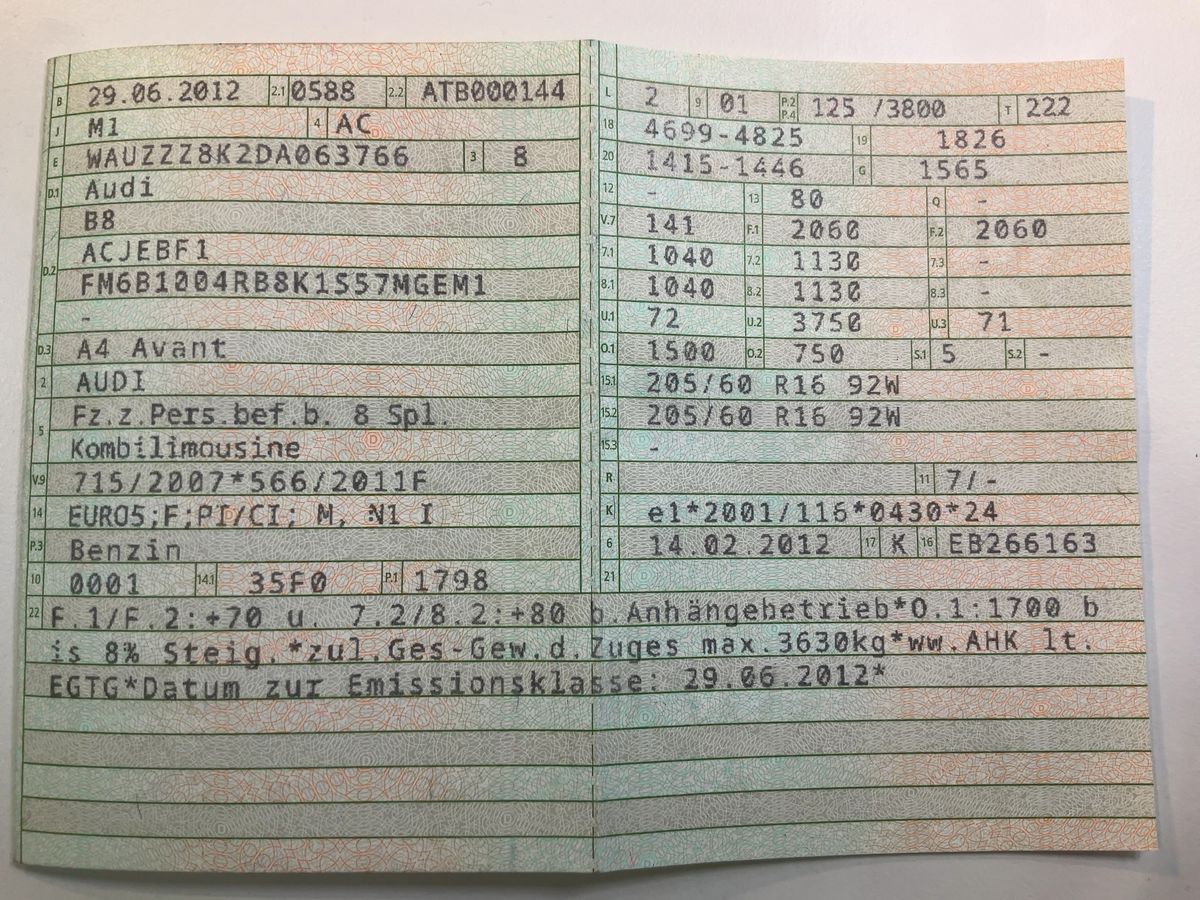 B 29.06.2012 2.1 0588 2.2 ATB000144
J M1 4 AC
E WAUZZZ8K2DA063766 3 8
D.1 Audi
B8
D.2 ACJEBF1
FM6B1004RB8K1S57MGEM1
-
D.3 A4 Avant
2 AUDI
5 Fz.z.Pers.bef.b. 8 Spl.
Kombilimousine
V.9 715/2007*566/2011F
14 EURO5;F;PI/CI; M, N1 I
P.3 Benzin
10 0001 14.1 35F0 P.1 1798
L 2 9 01 P.2 P.4 125 /3800 T 222
18 4699-4825 19 1826
20 1415-1446 G 1565
12 - 13 80 Q -
V.7 141 F.1 2060 F.2 2060
7.1 1040 7.2 1130 7.3 -
8.1 1040 8.2 1130 8.3 -
U.1 72 U.2 3750 U.3 71
O.1 1500 O.2 750 S.1 5 S.2 -
15.1 205/60 R16 92W
15.2 205/60 R16 92W
15.3 -
R 11 7/-
K e1*2001/116*0430*24
6 14.02.2012 17 K 16 EB266163
21
22 F.1/F.2:+70 u. 7.2/8.2:+80 b.Anhängebetrieb*O.1:1700 b
is 8% Steig.*zul.Ges-Gew.d.Zuges max.3630kg*ww.AHK lt.
EGTG*Datum zur Emissionsklasse: 29.06.2012*